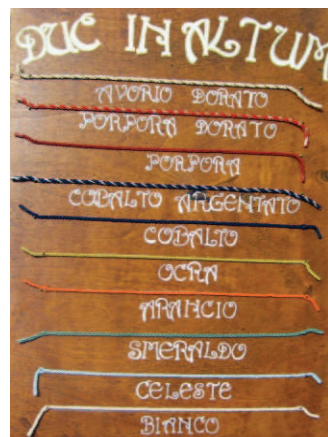 DUC IN ALTUM
AVORIO DORATO
PORPORA DORATO
PORPORA
COBALTO ARGENTATO
COBALTO
OCRA
ARANCIO
SMERALDO
CELESTE
BIANCO